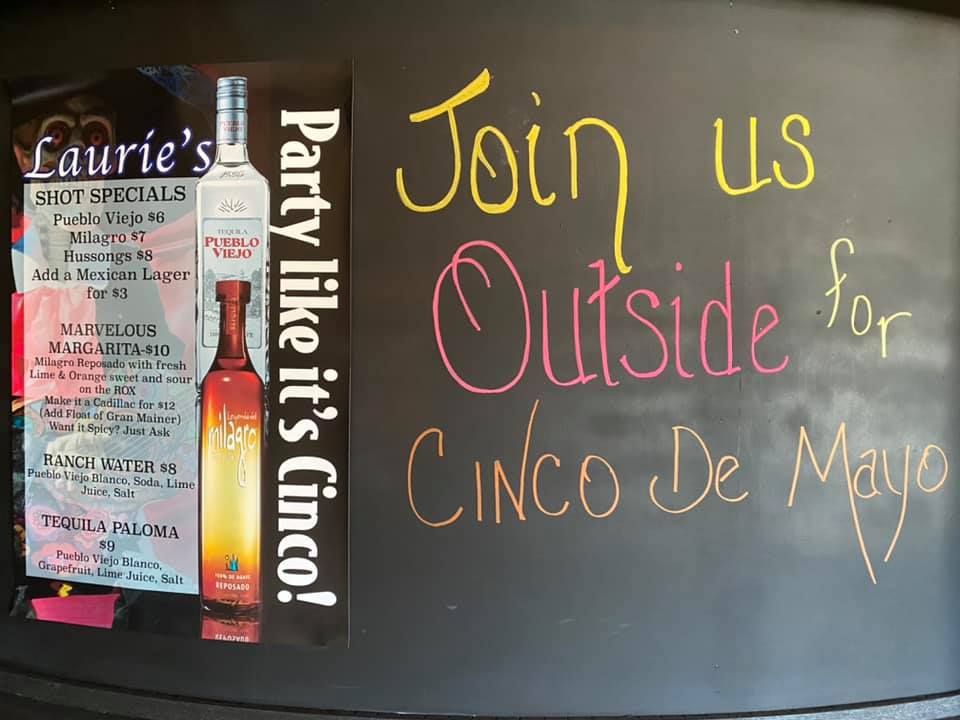 Laurie's
SHOT SPECIALS
Pueblo Viejo $6
Milagro $7
Hussongs $8
Add a Mexican Lager
for $3
MARVELOUS
MARGARITA-$10
Milagro Reposado with fresh
Lime & Orange sweet and sour
on the ROX
Make it a Cadillac for $12
(Add Float of Gran Mainer)
Want it Spicy? Just Ask
RANCH WATER $8
Pueblo Viejo Blanco, Soda, Lime
Juice, Salt
TEQUILA PALOMA
$9
Pueblo Viejo Blanco,
Grapefruit, Lime Juice, Salt
TEQUILA
PUEBLO
VIEJO
milagro
100% DE AGAVE
REPOSADO
Party like it's Cinco!
Join us
Outside for
CINCO De Mayo